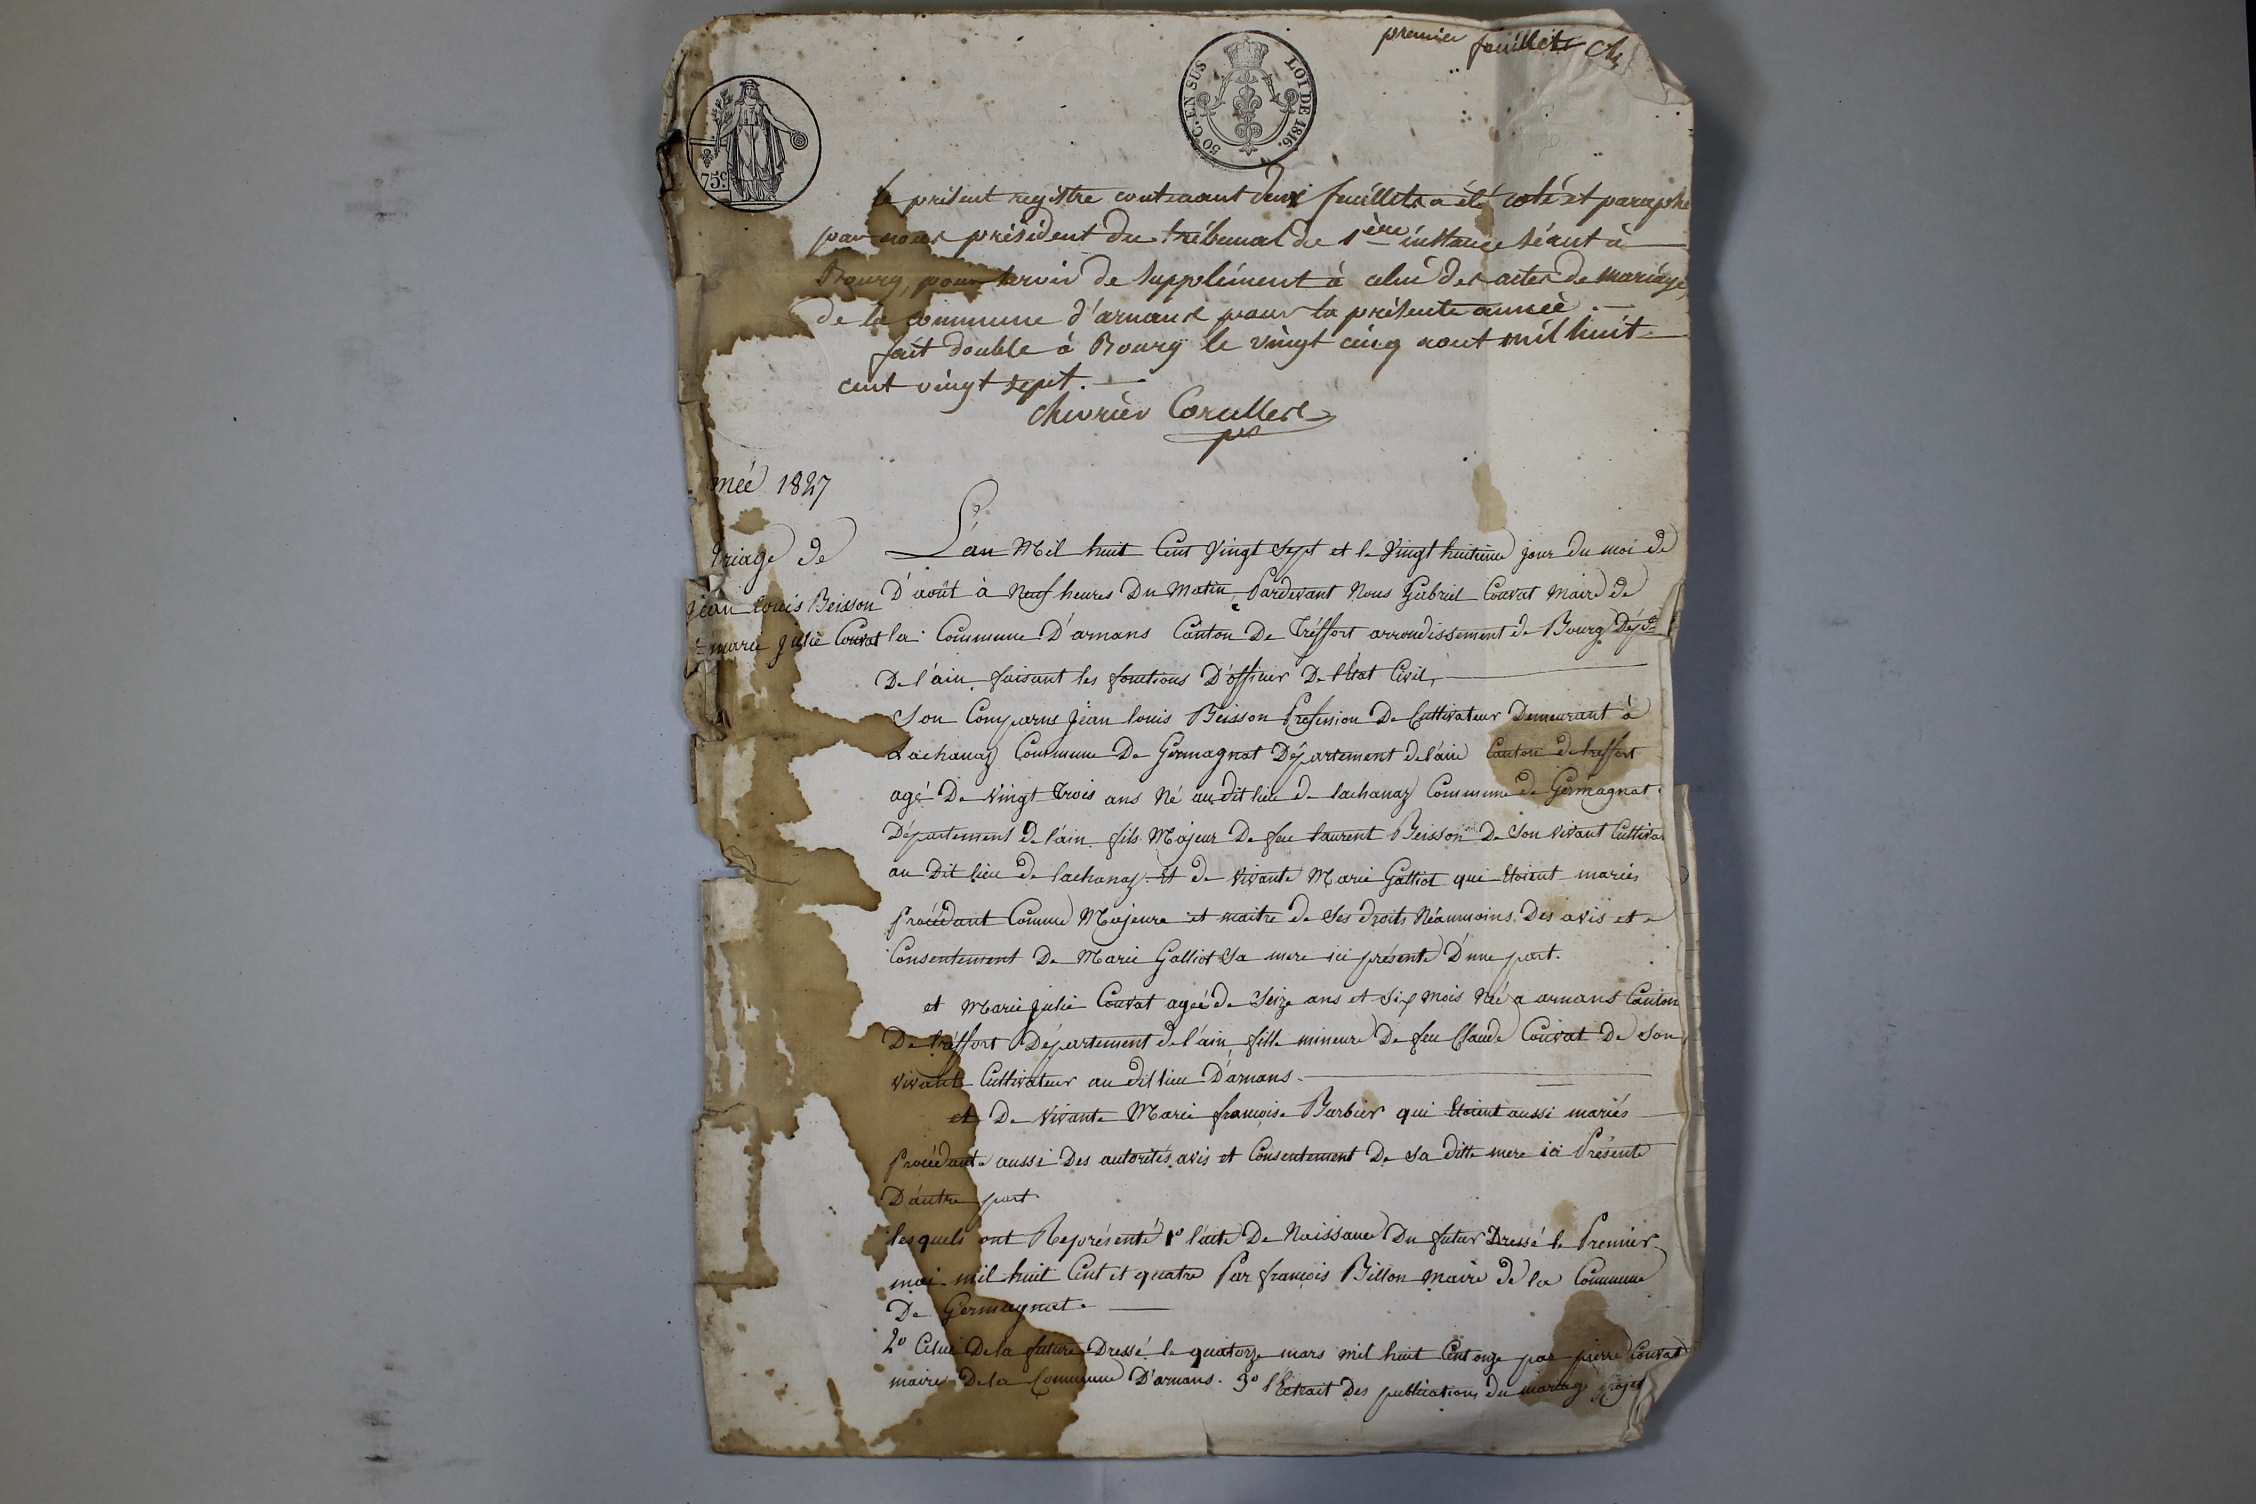 premier feuillet
50 C. EN SUS
LOI DE 1816.
75 c
le présent registre contenant deux feuillets a été coté et paraphé
par nous président du tribunal de 1ère instance séant à
Bourg, pour servir de supplément à celui des actes de mariage,
de la commune d'arnans pour la présente année.
fait double à Bourg le vingt cinq aout mil huit
cent vingt sept.
Chevrier Corcelles
née 1827
riage de
Jean Louis Beisson
marie Julie Couvat
L'an Mil huit Cent Vingt Sept et le Vingt huitieme jour du moi de
D'août à Neuf heures Du Matin, Pardevant Nous Gabriel Couvat Maire de
la Commune D'arnans Canton De Tréffort arrondissement de Bourg Dépt
De l'ain faisant les fonctions D'officier De l'Etat Civil,
Son Comparus Jean louis Beisson Profession De Cultivateur Demeurant à
Lachanaz Commune De Germagnat Département de l'ain Canton de treffort
agé De Vingt Trois ans Né au dit lieu de lachanaz Commune de Germagnat
Département De l'ain fils Majeur De feu laurent Beisson De Son vivant Cultiva
au Dit lieu de lachanaz Et de Vivante Marie Galliot qui Etoient mariés
Procédant Comme Majeure et maitre de Ses droits Néanmoins Des avis et
Consentement De Marie Galliot Sa mere ici présente D'une part.
et Marie Julie Couvat agée de Seize ans et Six Mois Né a arnans Canton
De tréffort Département de l'ain fille mineure De feu Claude Couvat De Son
vivant Cultivateur au dit lieu D'arnans
et De Vivante Marie françoise Barbier qui Etoient aussi mariés
Procédante aussi Des autorités avis et Consentement De Sa ditte mere ici Présente
D'autre part
lesquels ont Représenté 1o l'acte De Naissance Du futur Dressé le Premier
mai mil huit Cent et quatre Par françois Billon Maire de la Commune
De Germagnat.
2o Celui De la future Dressé le quatorze mars mil huit Cent onze par pierre Couvat
maire De la Commune D'arnans. 3o l'Extrait Des publications du mariage projet